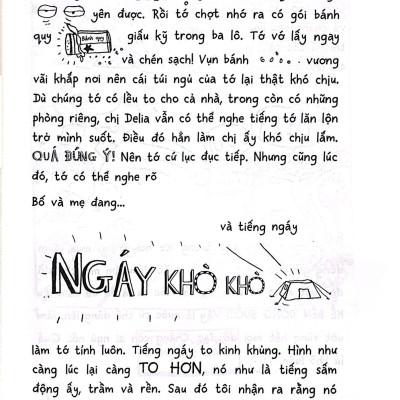 yên được. Rồi tớ chợt nhớ ra có gói bánh
quy Bánh quy giấu kỹ trong ba lô. Tớ vớ lấy ngay
và chén sạch! Vụn bánh vương
vãi khắp nơi nên cái túi ngủ của tớ lại thật khó chịu.
Dù chúng tớ có lều to cho cả nhà, trong còn có những
phòng riêng, chị Delia vẫn có thể nghe tiếng tớ lăn lộn
trở mình suốt. Điều đó hẳn làm chị ấy khó chịu lắm.
QUÁ ĐÚNG Ý! Nên tớ cứ lục đục tiếp. Nhưng cũng lúc
đó, tớ có thể nghe rõ
Bố và mẹ đang...
và tiếng ngáy
NGÁY KHÒ KHÒ
làm tớ tính luôn. Tiếng ngáy to kinh khủng. Hình như
càng lúc lại càng TO HƠN, nó như là tiếng sấm
động ấy, trầm và rền. Sau đó tôi nhận ra rằng nó